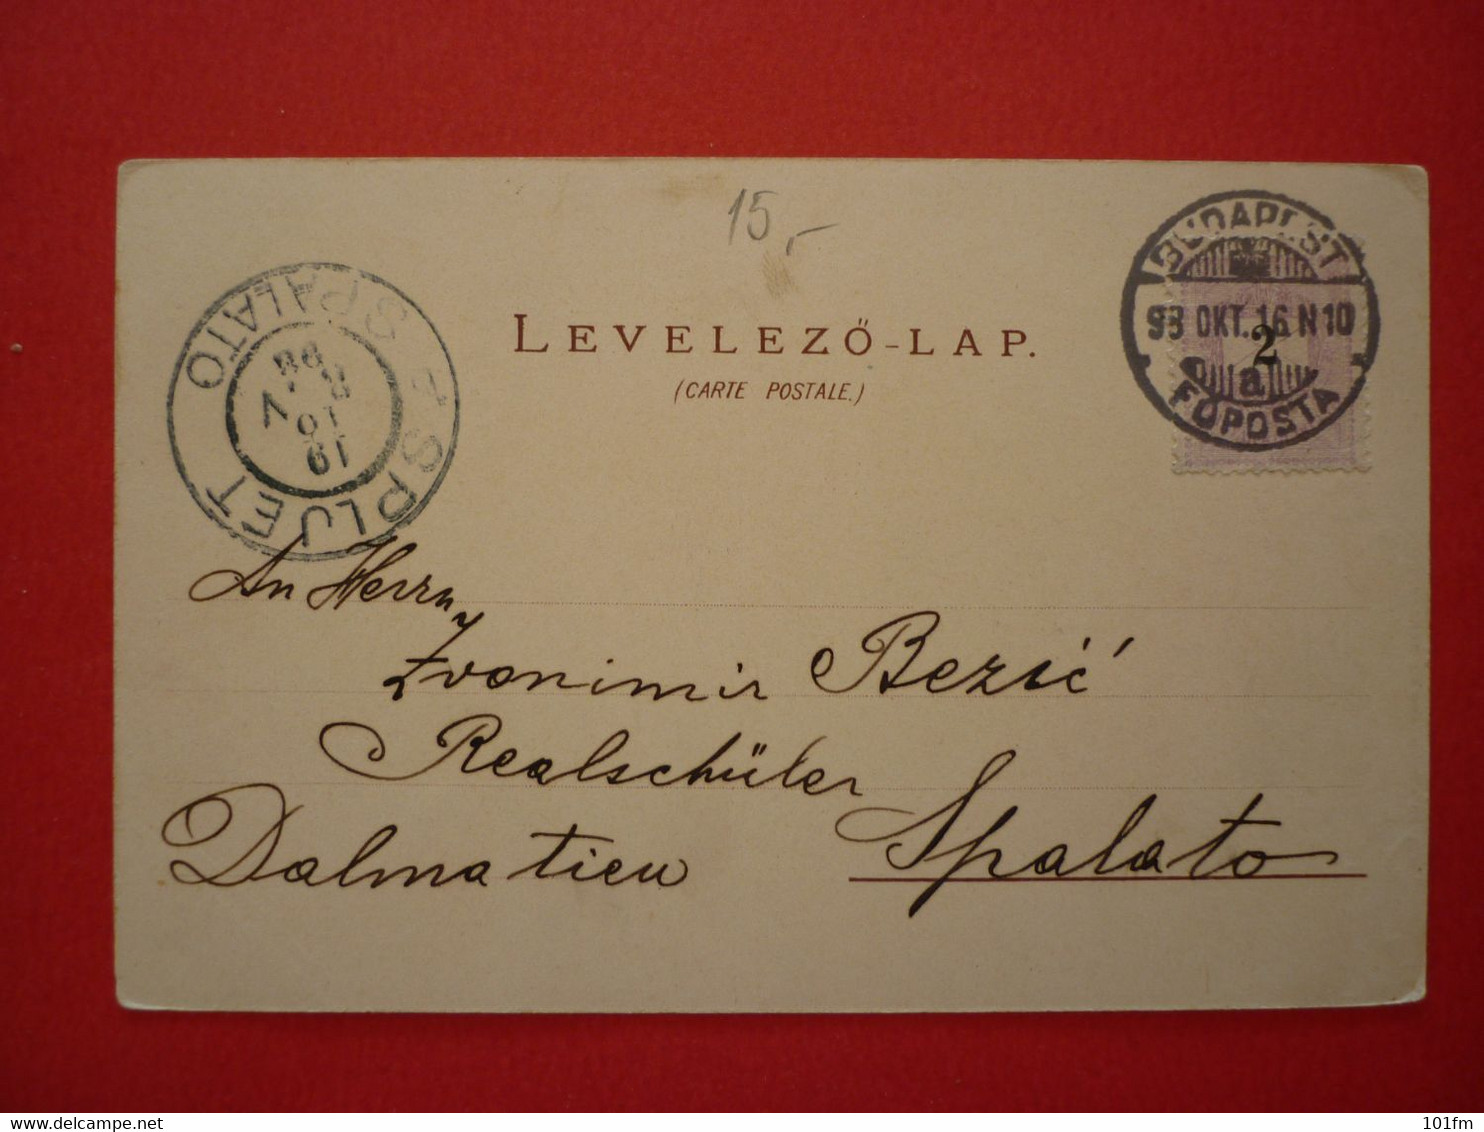 15,-
LEVELEZŐ-LAP.
(CARTE POSTALE.)
BUDAPEST
98 OKT. 16 N 10
2
a
FŐPOSTA
SPLJET
SPALATO
19
10
98
An Herrn
Zvonimir Bezić
Realschüler
Dalmatien Spalato
delcampe.net
101fm